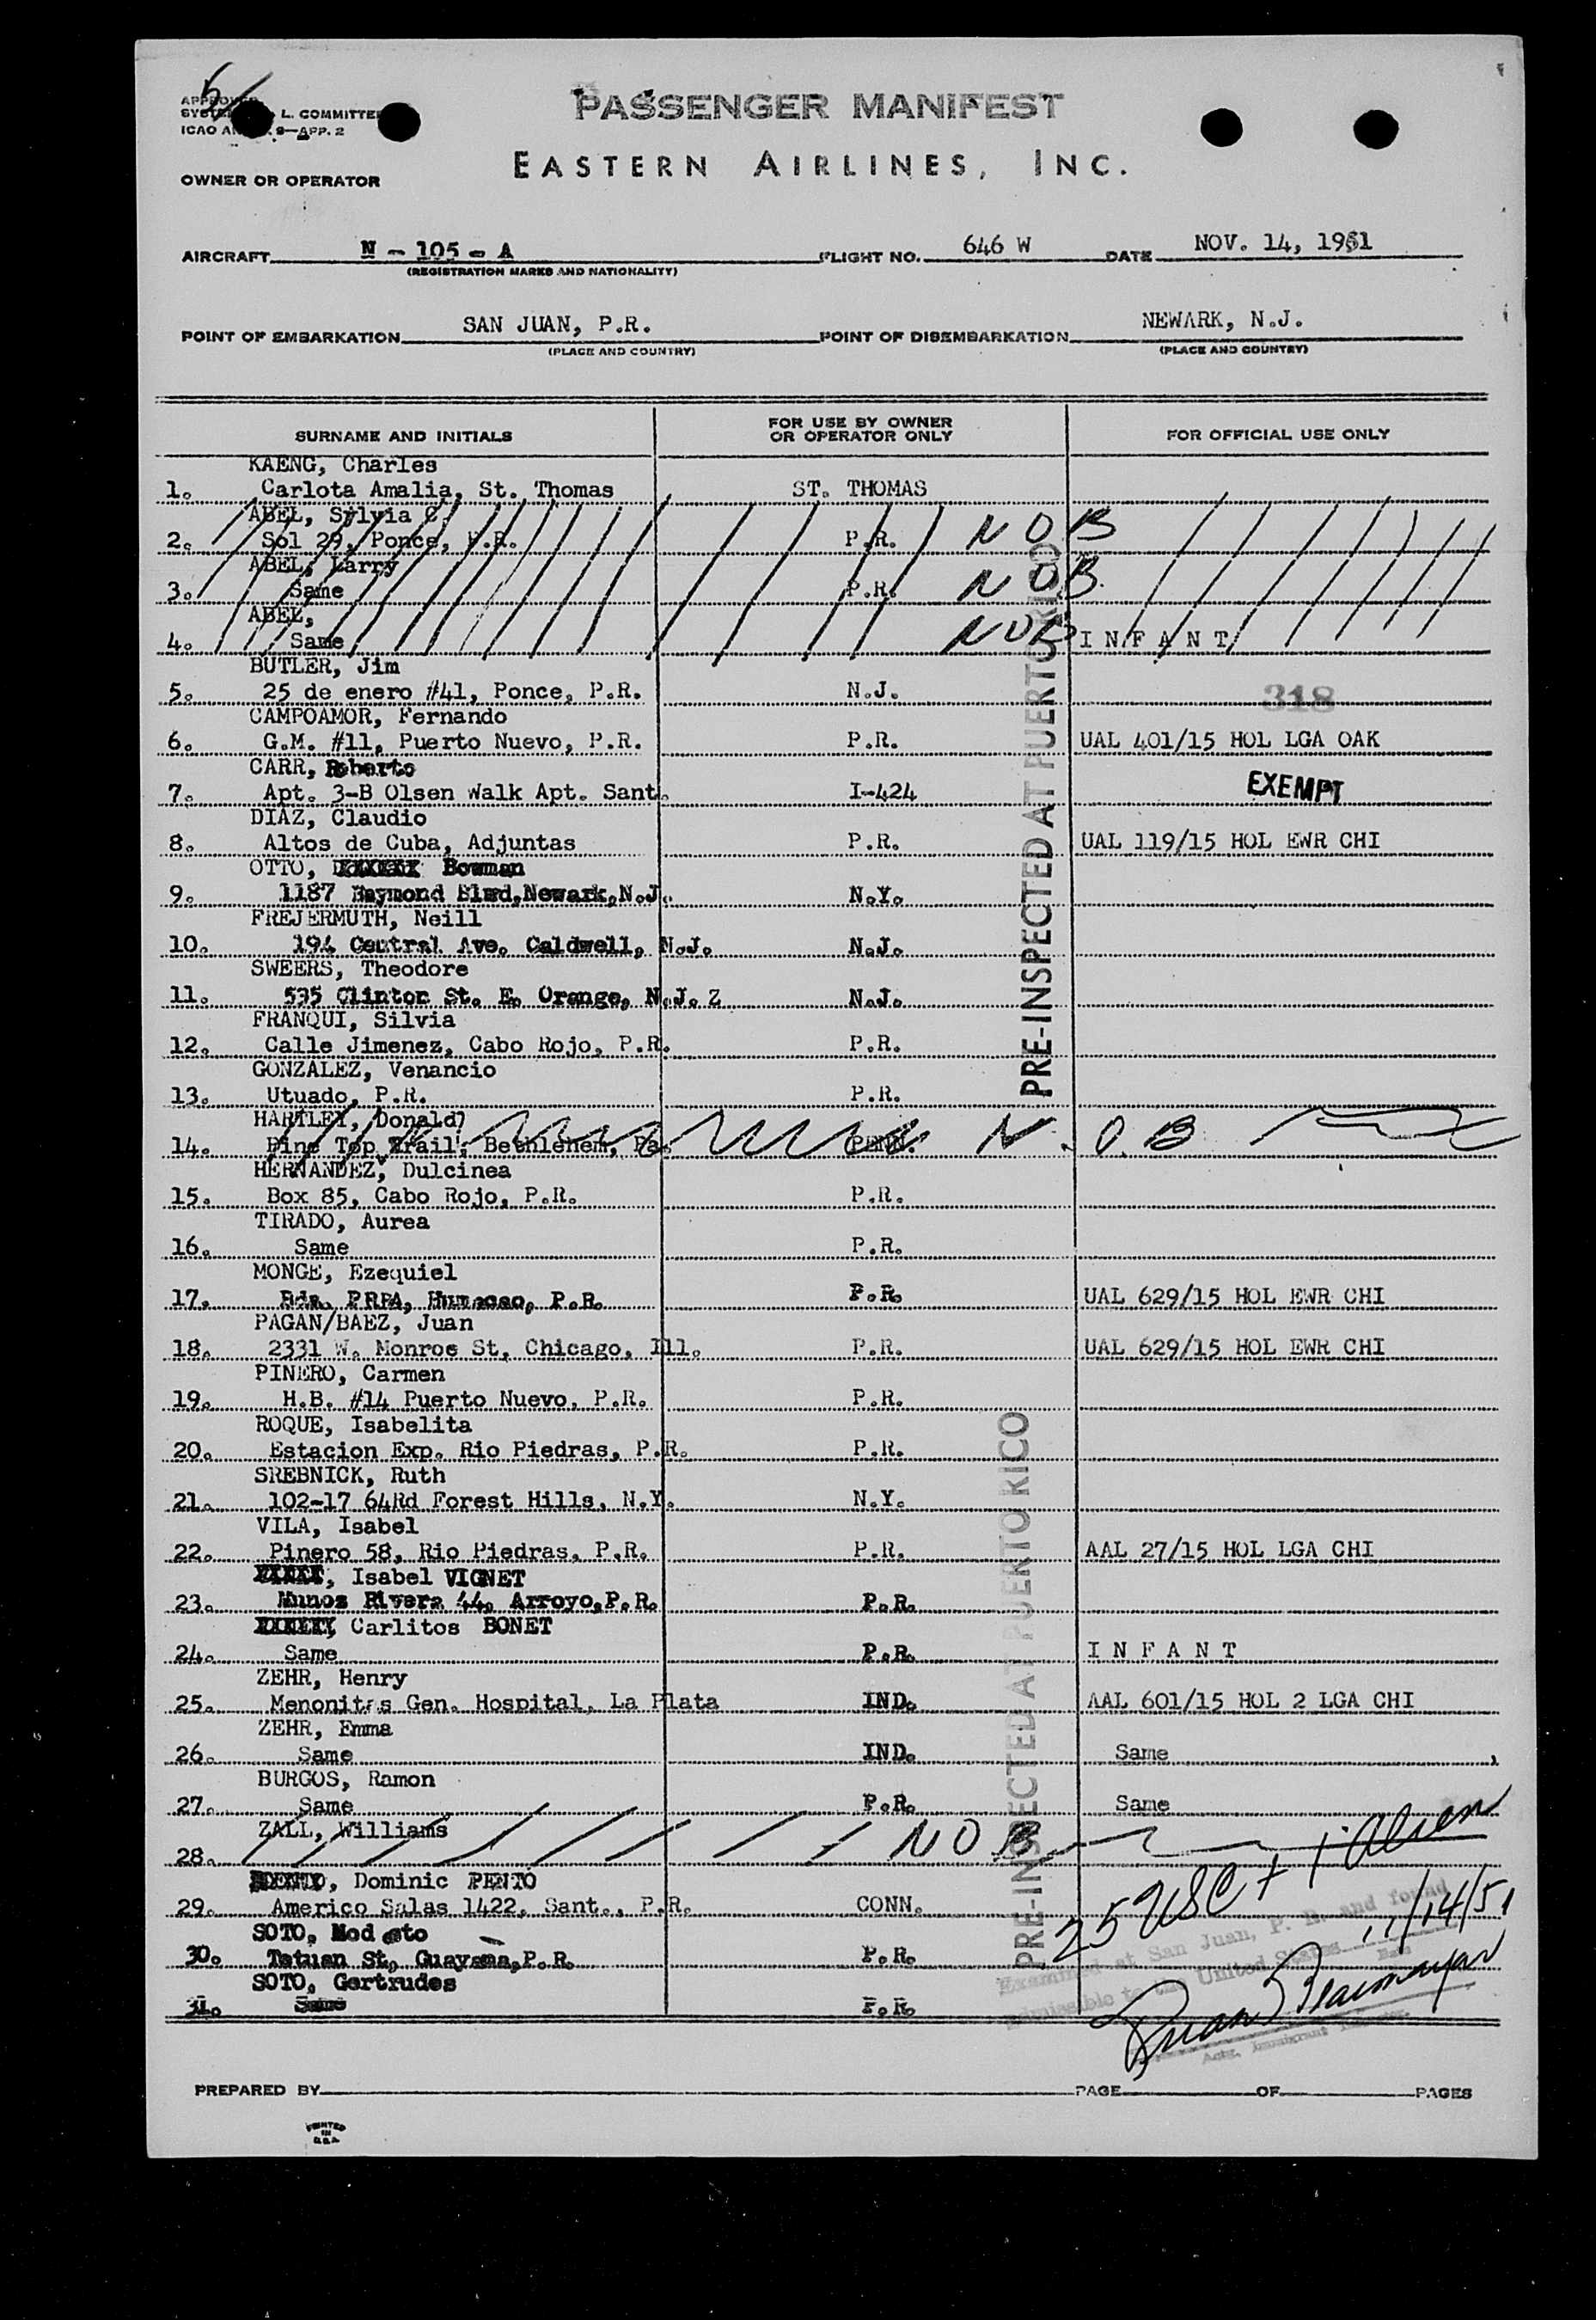 5
APPROVED
L. COMMITTEE
ICAO 9—APP. 2
PASSENGER MANIFEST
EASTERN AIRLINES, INC.
OWNER OR OPERATOR
AIRCRAFT N - 105 - A FLIGHT NO. 646 W DATE NOV. 14, 1951
(REGISTRATION MARKS AND NATIONALITY)
POINT OF EMBARKATION SAN JUAN, P.R. POINT OF DISEMBARKATION NEWARK, N.J.
(PLACE AND COUNTRY) (PLACE AND COUNTRY)
SURNAME AND INITIALS FOR USE BY OWNER OR OPERATOR ONLY FOR OFFICIAL USE ONLY
KAENG, Charles
1. Carlota Amalia, St. Thomas ST. THOMAS
ABEL, Sylvia C.
2. Sol 29, Ponce, P.R. P.R. NOB
ABEL, Larry
3. Same P.R. NOB
ABEL,
4. Same NOB INFANT
BUTLER, Jim
5. 25 de enero #41, Ponce, P.R. N.J. 318
CAMPOAMOR, Fernando
6. G.M. #11, Puerto Nuevo, P.R. P.R. UAL 401/15 HOL LGA OAK
CARR, Roberto
7. Apt. 3-B Olsen Walk Apt. Sant. I-424 EXEMPT
DIAZ, Claudio
8. Altos de Cuba, Adjuntas P.R. UAL 119/15 HOL EWR CHI
OTTO, Bowman
9. 1187 Raymond Blvd,Newark,N.J. N.Y.
FREJERMUTH, Neill
10. 194 Central Ave. Caldwell, N.J. N.J.
SWEERS, Theodore
11. 595 Clinton St. E. Orange, N.J. Z N.J.
FRANQUI, Silvia
12. Calle Jimenez, Cabo Rojo, P.R. P.R.
GONZALEZ, Venancio
13. Utuado, P.R. P.R.
HARTLEY, Donald
14. Pine Top Trail, Bethlehem, Pa. PENN. N.O.B
HERNANDEZ, Dulcinea
15. Box 85, Cabo Rojo, P.R. P.R.
TIRADO, Aurea
16. Same P.R.
MONGE, Ezequiel
17. Bda. PRRA, Humacao, P.R. P.R. UAL 629/15 HOL EWR CHI
PAGAN/BAEZ, Juan
18. 2331 W. Monroe St, Chicago, Ill. P.R. UAL 629/15 HOL EWR CHI
PINERO, Carmen
19. H.B. #14 Puerto Nuevo, P.R. P.R.
ROQUE, Isabelita
20. Estacion Exp. Rio Piedras, P.R. P.R.
SREBNICK, Ruth
21. 102-17 64Rd Forest Hills, N.Y. N.Y.
VILA, Isabel
22. Pinero 58, Rio Piedras, P.R. P.R. AAL 27/15 HOL LGA CHI
, Isabel VIGNET
23. Munoz Rivera 44, Arroyo,P.R. P.R.
Carlitos BONET
24. Same P.R. INFANT
ZEHR, Henry
25. Menonitas Gen. Hospital, La Plata IND. AAL 601/15 HOL 2 LGA CHI
ZEHR, Emma
26. Same IND. Same
BURGOS, Ramon
27. Same P.R. Same
ZALL, Williams
28. NOB
, Dominic PENTO
29. Americo Salas 1422, Sant., P.R. CONN.
SOTO, Modesto
30. Tetuan St, Guayama,P.R. P.R.
SOTO, Gertrudes
31. Same P.R.
PRE-INSPECTED AT PUERTO RICO
PRE-INSPECTED AT PUERTO RICO
25 USC + 1 Alien
11/14/51
Examined at San Juan, P. R. and found
admissible to the United States
Date
Actg. Immigrant Inspector
PREPARED BY PAGE OF PAGES
PRINTED
IN
U.S.A.